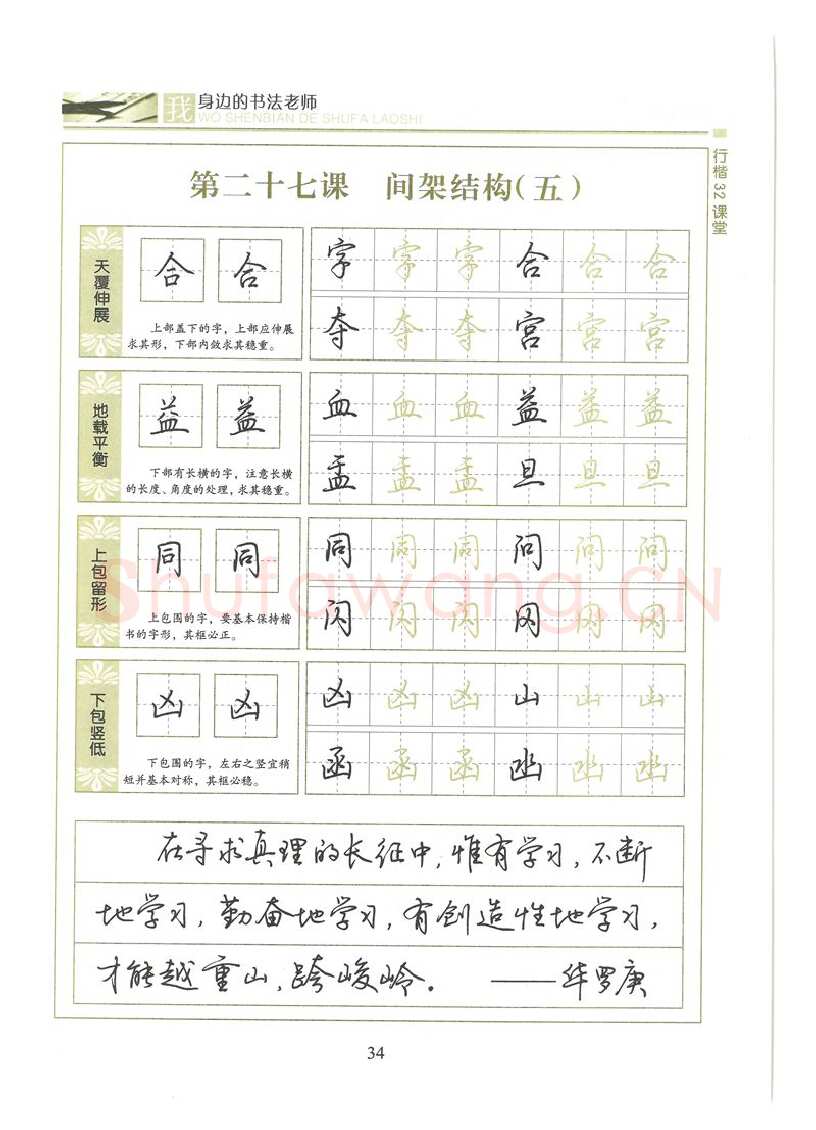 我 身边的书法老师
WO SHENBIAN DE SHUFA LAOSHI
行楷32课堂
第二十七课 间架结构(五)
天覆伸展
合 合
上部盖下的字,上部应伸展
求其形,下部内敛求其稳重。
字 字 字 合 合 合
夺 夺 夺 宫 宫 宫
地载平衡
益 益
下部有长横的字,注意长横
的长度、角度的处理,求其稳重。
血 血 血 益 益 益
孟 孟 孟 旦 旦 旦
上包留形
同 同
上包围的字,要基本保持楷
书的字形,其框必正。
同 同 同 问 问 问
闪 闪 闪 冈 冈 冈
下包竖低
凶 凶
下包围的字,左右之竖宜稍
短并基本对称,其框必稳。
凶 凶 凶 山 山 山
函 函 函 幽 幽 幽
Shufawang.CN
在寻求真理的长征中,惟有学习,不断
地学习,勤奋地学习,有创造性地学习,
才能越重山,跨峻岭。 ——华罗庚
34